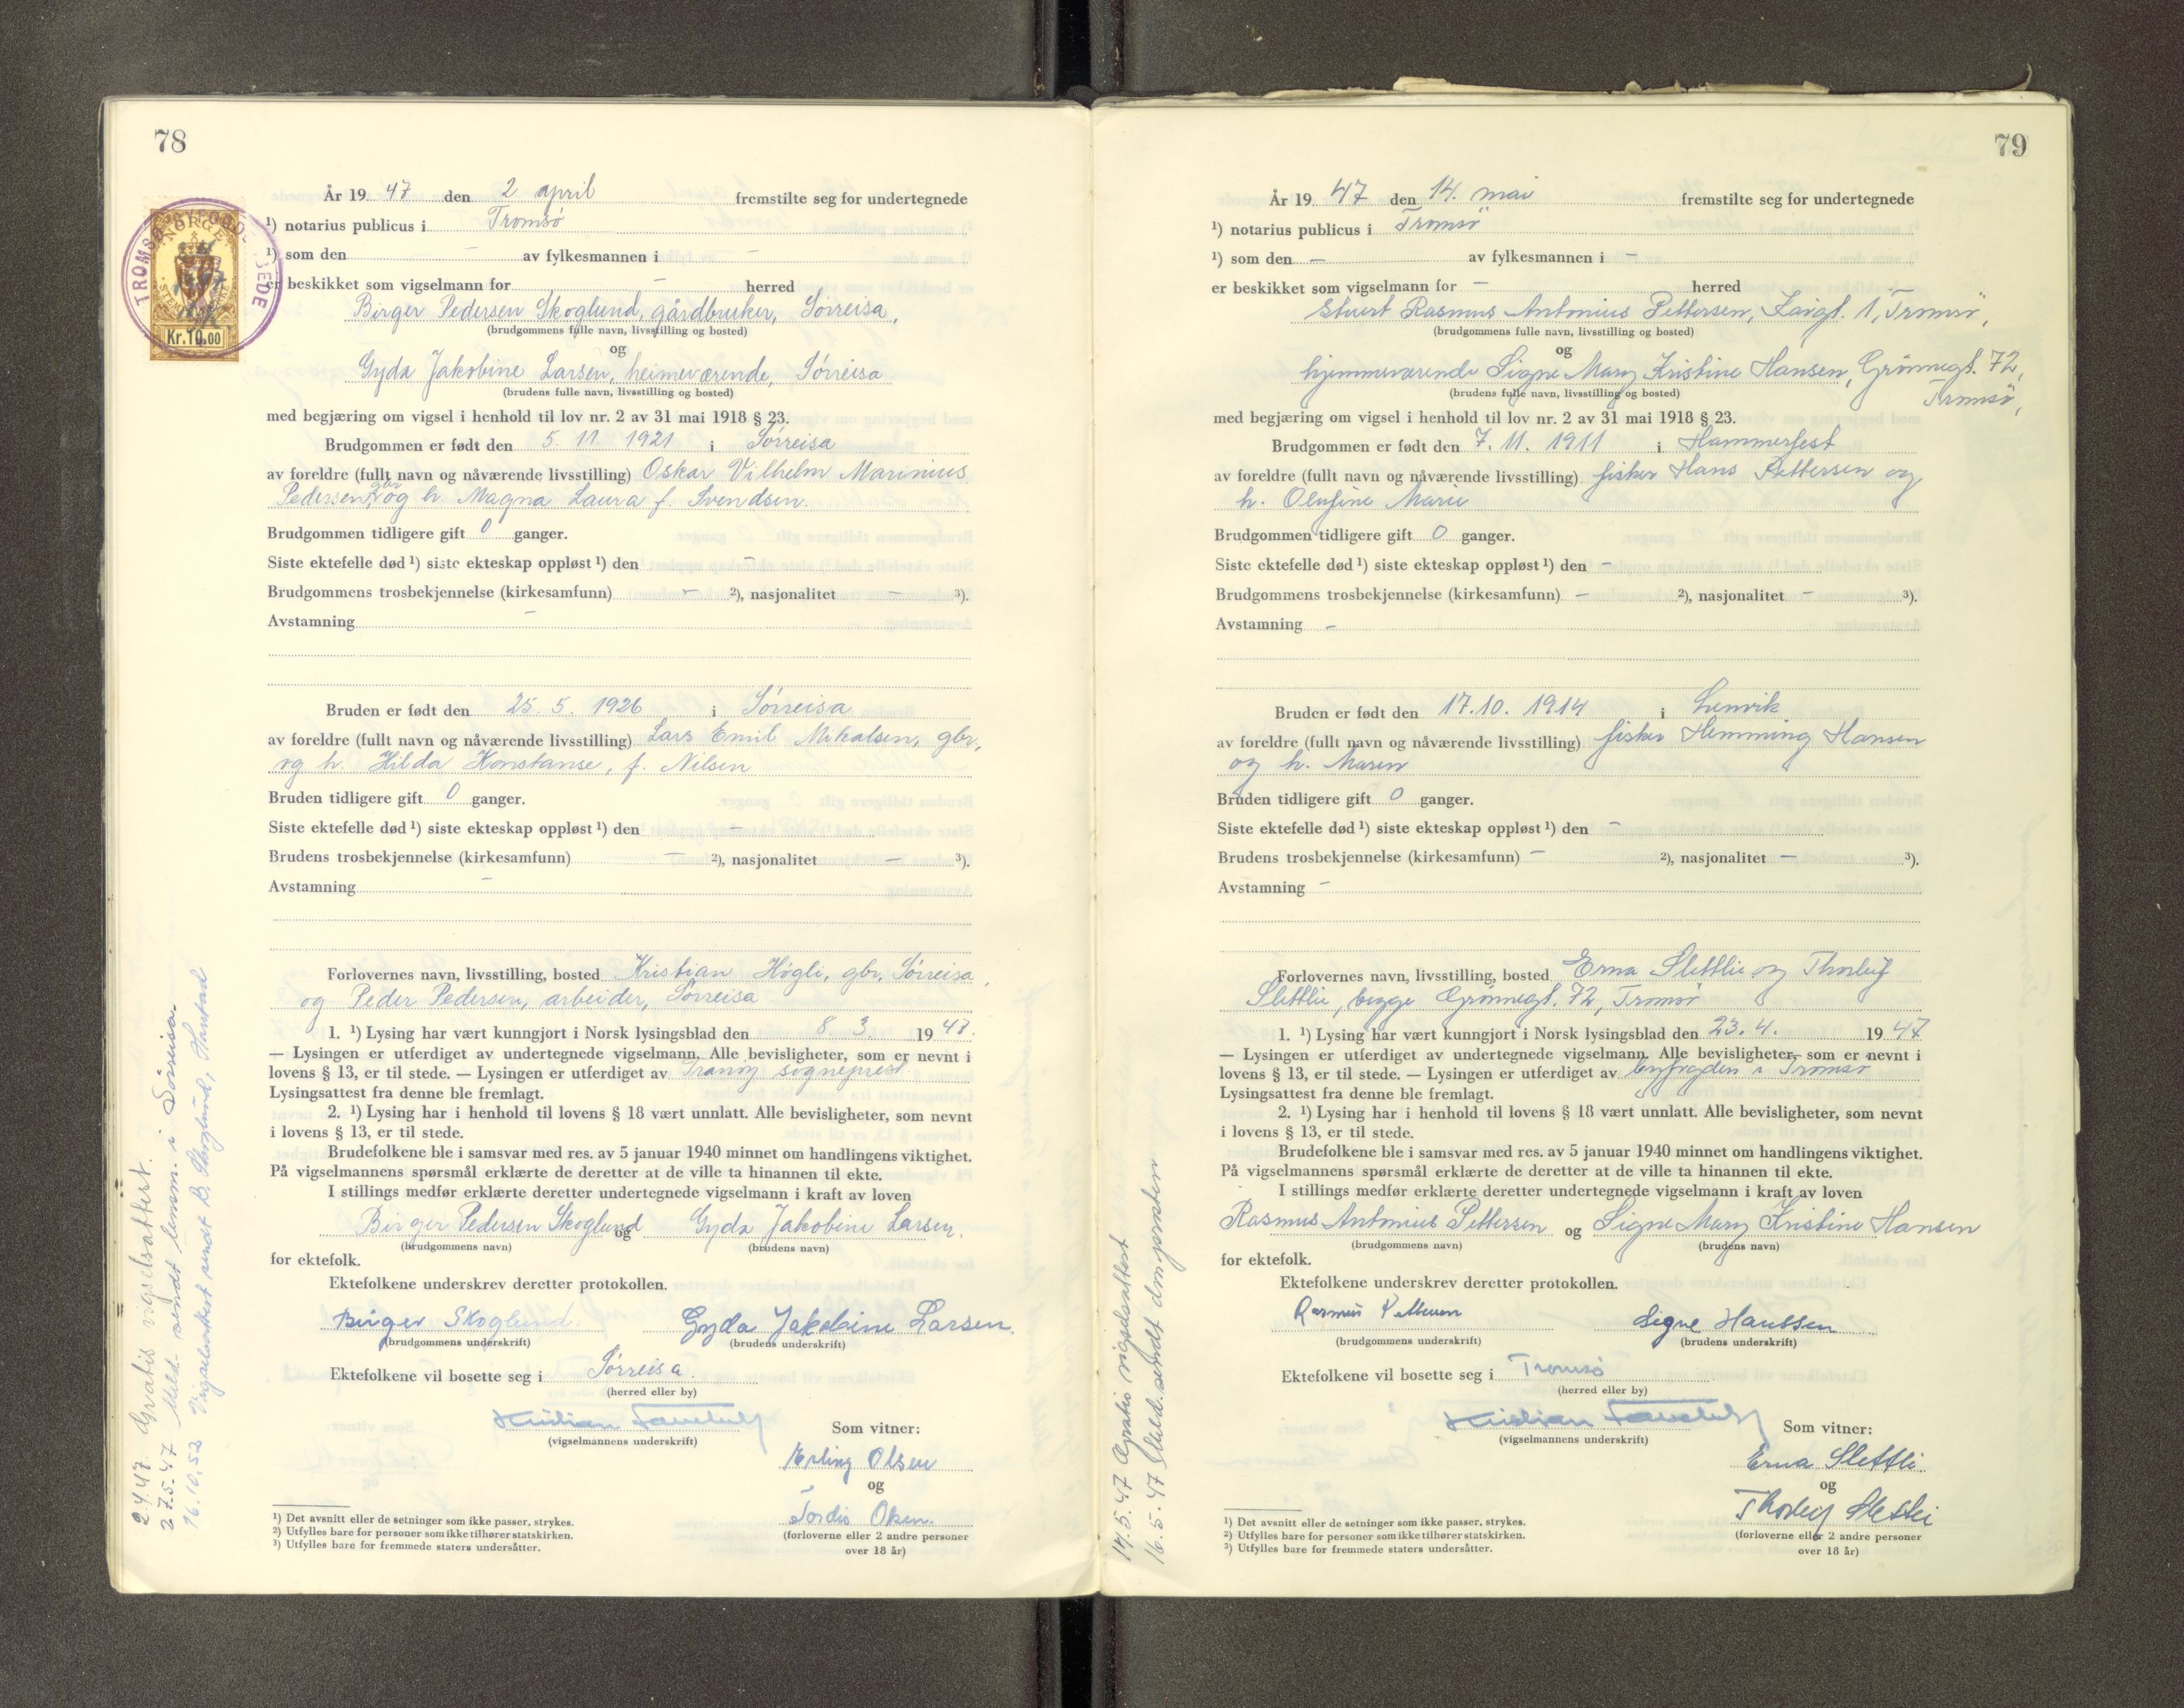 78
År 19 47 den 2 april fremstilte seg for undertegnede
¹) notarius publicus i Tromsø
¹) som den – av fylkesmannen i –
er beskikket som vigselmann for – herred
Birger Pedersen Skoglund, gårdbruker, Sørreisa,
(brudgommens fulle navn, livsstilling og bosted)
og
Gyda Jakobine Larsen, heimeværende, Sørreisa
(brudens fulle navn, livsstilling og bosted)
med begjæring om vigsel i henhold til lov nr. 2 av 31 mai 1918 § 23.
Brudgommen er født den 5. 11. 1921 i Sørreisa
av foreldre (fullt navn og nåværende livsstilling) Oskar Vilhelm Marinius
Pedersen, gbr og h. Magna Laura f. Svendsen.
Brudgommen tidligere gift 0 ganger.
Siste ektefelle død ¹) siste ekteskap oppløst ¹) den –
Brudgommens trosbekjennelse (kirkesamfunn) – ²), nasjonalitet – ³).
Avstamning –
Bruden er født den 25. 5. 1926 i Sørreisa
av foreldre (fullt navn og nåværende livsstilling) Lars Emil Mikalsen, gbr,
og h. Hilda Konstanse, f. Nilsen
Bruden tidligere gift 0 ganger.
Siste ektefelle død ¹) siste ekteskap oppløst ¹) den –
Brudens trosbekjennelse (kirkesamfunn) – ²), nasjonalitet – ³).
Avstamning –
Forlovernes navn, livsstilling, bosted Kristian Høgli, gbr, Sørreisa,
og Peder Pedersen, arbeider, Sørreisa
1. ¹) Lysing har vært kunngjort i Norsk lysingsblad den 8. 3. 19 47.
— Lysingen er utferdiget av undertegnede vigselmann. Alle bevisligheter, som er nevnt i
lovens § 13, er til stede. — Lysingen er utferdiget av Tranøy sogneprest.
Lysingsattest fra denne ble fremlagt.
2. ¹) Lysing har i henhold til lovens § 18 vært unnlatt. Alle bevisligheter, som nevnt
i lovens § 13, er til stede.
Brudefolkene ble i samsvar med res. av 5 januar 1940 minnet om handlingens viktighet.
På vigselmannens spørsmål erklærte de deretter at de ville ta hinannen til ekte.
I stillings medfør erklærte deretter undertegnede vigselmann i kraft av loven
Birger Pedersen Skoglund og Gyda Jakobine Larsen.
(brudgommens navn) (brudens navn)
for ektefolk.
Ektefolkene underskrev deretter protokollen.
Birger Skoglund Gyda Jakobine Larsen.
(brudgommens underskrift) (brudens underskrift)
Ektefolkene vil bosette seg i Sørreisa.
(herred eller by)
Kristian
(vigselmannens underskrift)
Som vitner:
Erling Olsen
og
Tordis Olsen.
(forloverne eller 2 andre personer
over 18 år)
¹) Det avsnitt eller de setninger som ikke passer, strykes.
²) Utfylles bare for personer som ikke tilhører statskirken.
³) Utfylles bare for fremmede staters undersåtter.
2.4.47. Gratis vigselsattest.
27.5.-47 Meld. sendt lensm. i Sørreisa
16.10.52 Vigselsattest sendt B. Skoglund, Harstad
NORGE
Kr. 10.00
79
År 19 47 den 14. mai fremstilte seg for undertegnede
¹) notarius publicus i Tromsø
¹) som den – av fylkesmannen i –
er beskikket som vigselmann for – herred
Rasmus Antonius Pettersen, 1, Tromsø,
(brudgommens fulle navn, livsstilling og bosted)
og
hjemmeværende Signe Mary Kristine Hansen, Grønnegt. 72,
Tromsø,
(brudens fulle navn, livsstilling og bosted)
med begjæring om vigsel i henhold til lov nr. 2 av 31 mai 1918 § 23.
Brudgommen er født den 7. 11. 1911 i Hammerfest
av foreldre (fullt navn og nåværende livsstilling) fisker Hans Pettersen og
h. Olufine Marie
Brudgommen tidligere gift 0 ganger.
Siste ektefelle død ¹) siste ekteskap oppløst ¹) den –
Brudgommens trosbekjennelse (kirkesamfunn) – ²), nasjonalitet – ³).
Avstamning –
Bruden er født den 17.10. 1914 i Lenvik
av foreldre (fullt navn og nåværende livsstilling) fisker Hemming Hansen
og h. Maren
Bruden tidligere gift 0 ganger.
Siste ektefelle død ¹) siste ekteskap oppløst ¹) den –
Brudens trosbekjennelse (kirkesamfunn) – ²), nasjonalitet – ³).
Avstamning –
Forlovernes navn, livsstilling, bosted Erna Slettlie og Thorleif
Slettlie, begge Grønnegt. 72, Tromsø
1. ¹) Lysing har vært kunngjort i Norsk lysingsblad den 23. 4. 19 47
— Lysingen er utferdiget av undertegnede vigselmann. Alle bevisligheter, som er nevnt i
lovens § 13, er til stede. — Lysingen er utferdiget av byfogden i Tromsø
Lysingsattest fra denne ble fremlagt.
2. ¹) Lysing har i henhold til lovens § 18 vært unnlatt. Alle bevisligheter, som nevnt
i lovens § 13, er til stede.
Brudefolkene ble i samsvar med res. av 5 januar 1940 minnet om handlingens viktighet.
På vigselmannens spørsmål erklærte de deretter at de ville ta hinannen til ekte.
I stillings medfør erklærte deretter undertegnede vigselmann i kraft av loven
Rasmus Antonius Pettersen og Signe Mary Kristine Hansen
(brudgommens navn) (brudens navn)
for ektefolk.
Ektefolkene underskrev deretter protokollen.
Rasmus Pettersen Signe Hanssen
(brudgommens underskrift) (brudens underskrift)
Ektefolkene vil bosette seg i Tromsø
(herred eller by)
Kristian
(vigselmannens underskrift)
Som vitner:
Erna Slettli
og
Thorleif Slettli
(forloverne eller 2 andre personer
over 18 år)
¹) Det avsnitt eller de setninger som ikke passer, strykes.
²) Utfylles bare for personer som ikke tilhører statskirken.
³) Utfylles bare for fremmede staters undersåtter.
14.5.-47 Gratis vigselsattest
16.5-47 Meld. sendt domprosten